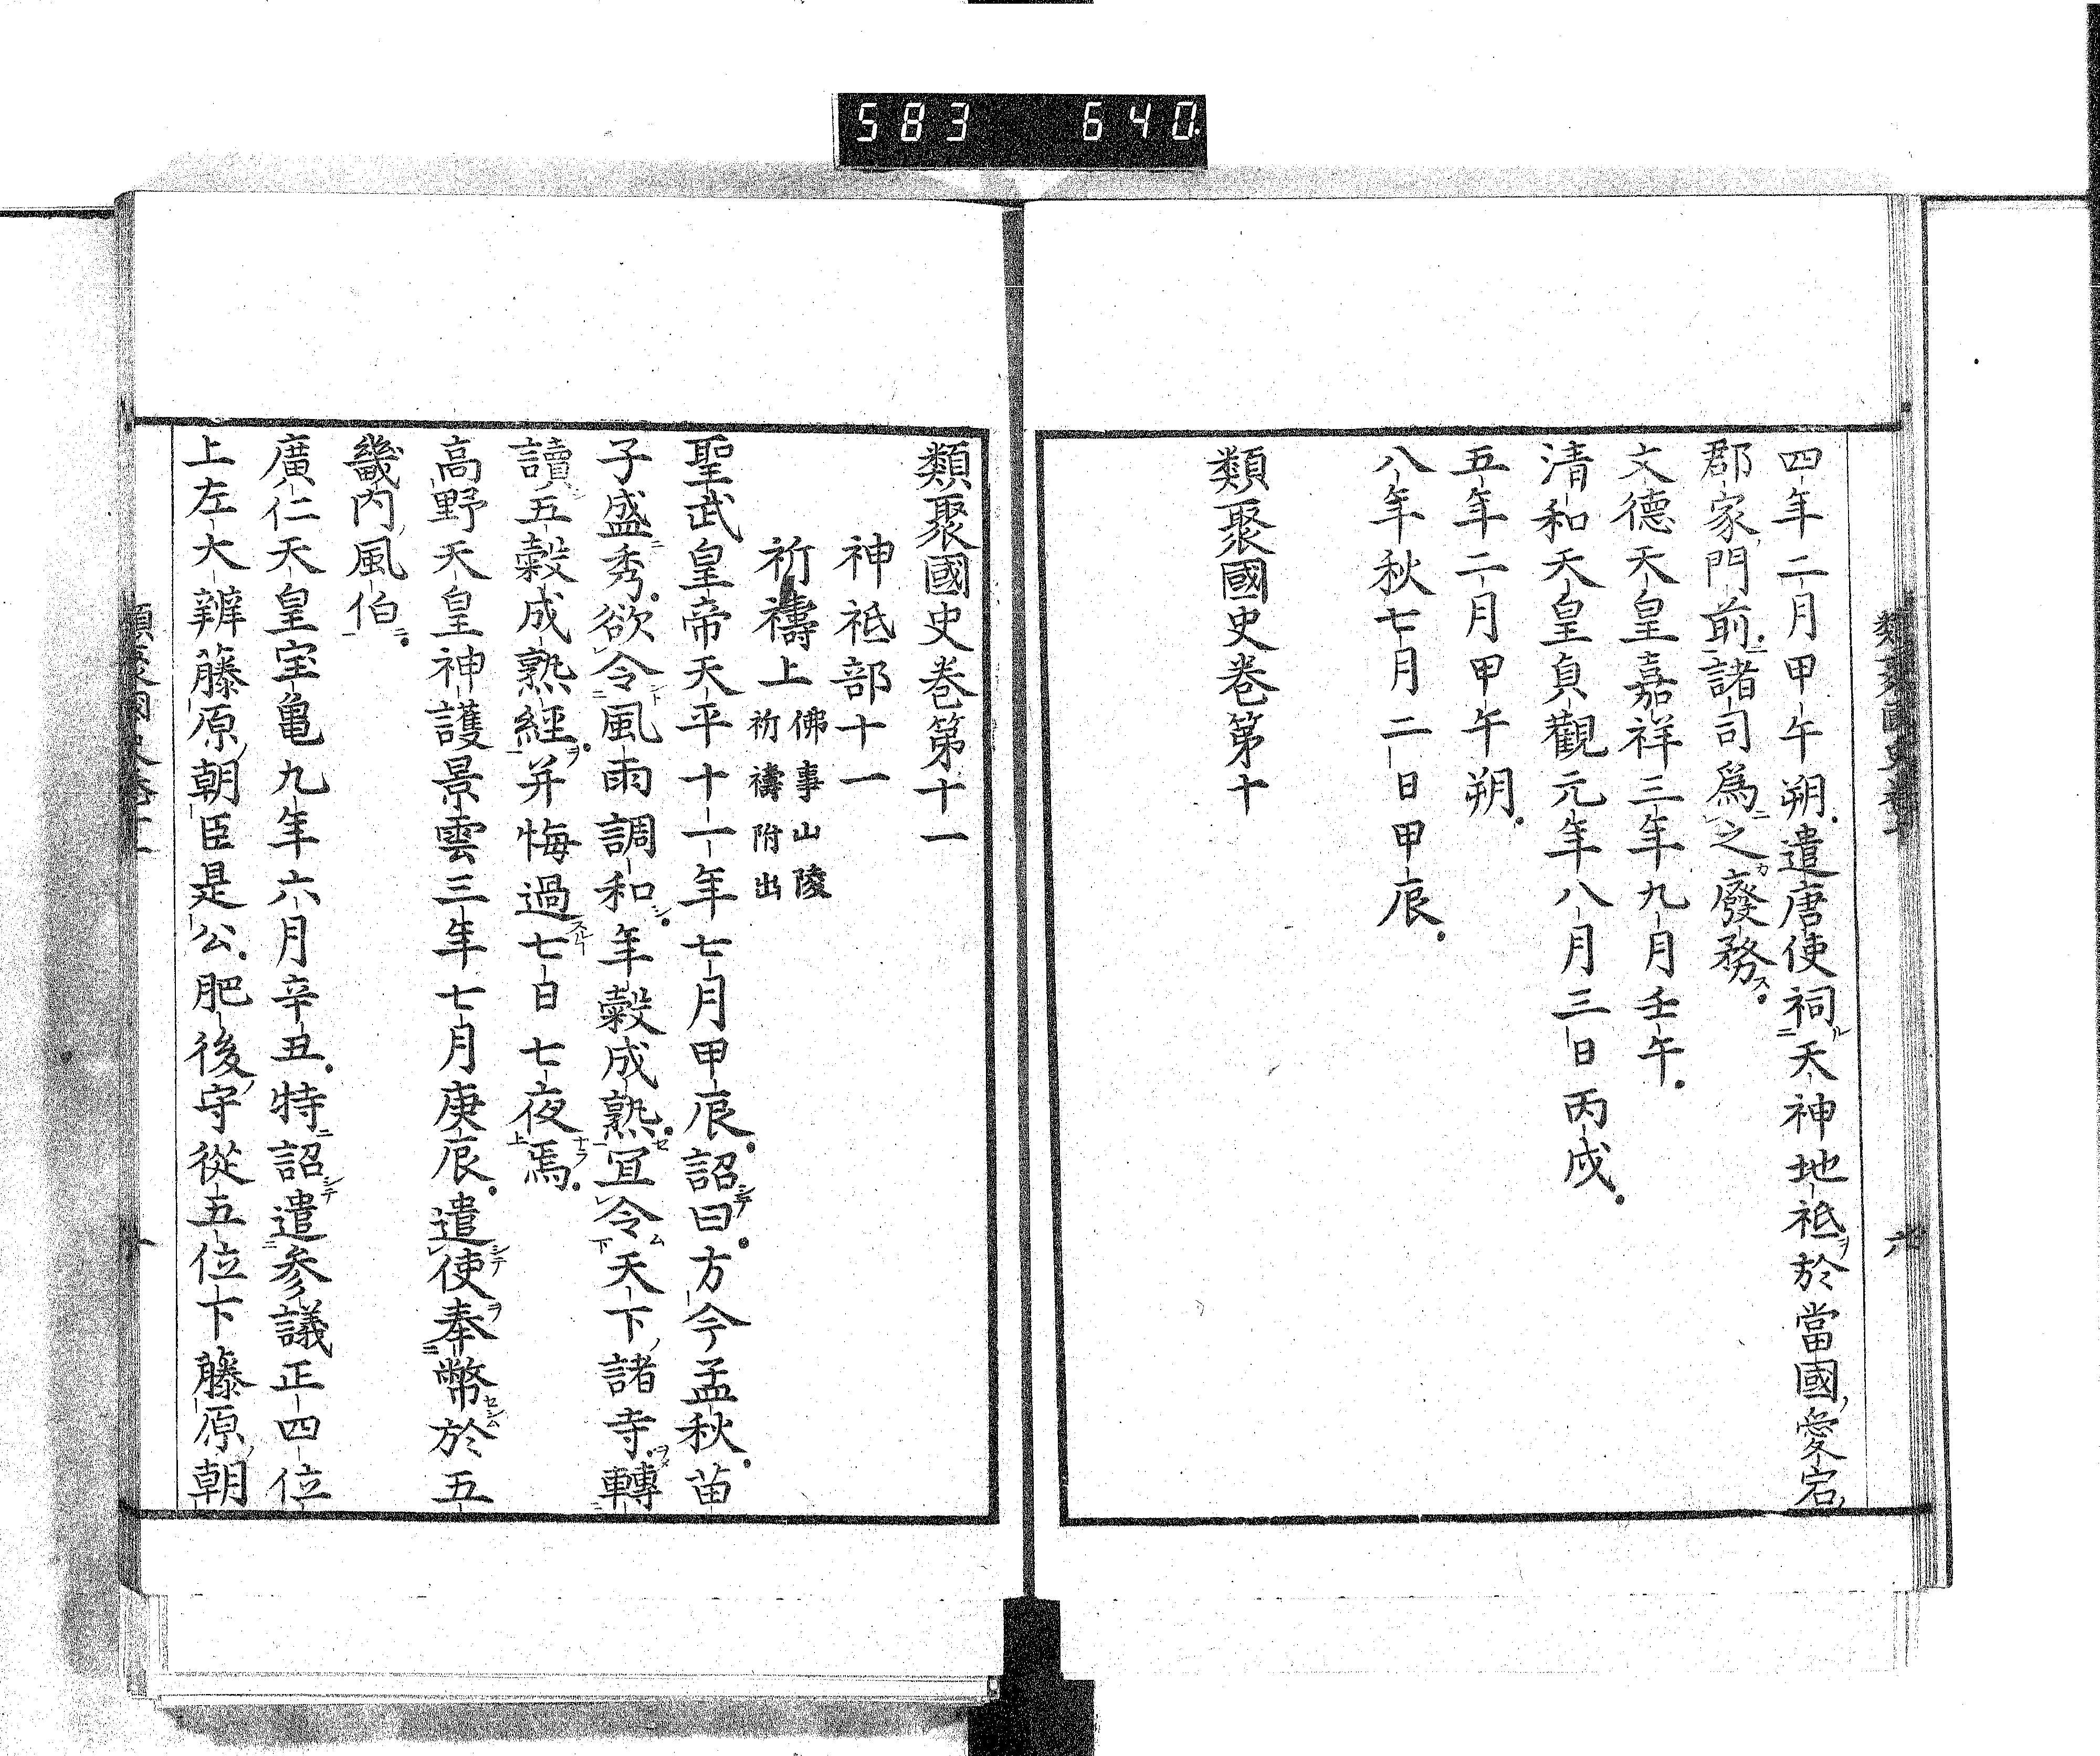 583 640
四年二月甲午朔遣唐使祠天神地祇於當國愛宕
郡家門前諸司爲之廢務
文德天皇嘉祥三年九月壬午
清和天皇貞觀元年八月三日丙戌
五年二月甲午朔
八年秋七月二日甲辰
類聚國史卷第十
類聚國史卷第十一
神祇部十一
祈禱上 佛事山陵
祈禱附出
聖武皇帝天平十一年七月甲辰詔曰方今孟秋苗
子盛秀欲令風雨調和年穀成熟冝令天下諸寺轉
讀五穀成熟經并悔過七日七夜焉
高野天皇神護景雲三年七月庚辰遣使奉幣於五
畿内風伯
廣仁天皇宝亀九年六月辛丑特詔遣参議正四位
上左大辨藤原朝臣是公肥後守從五位下藤原朝